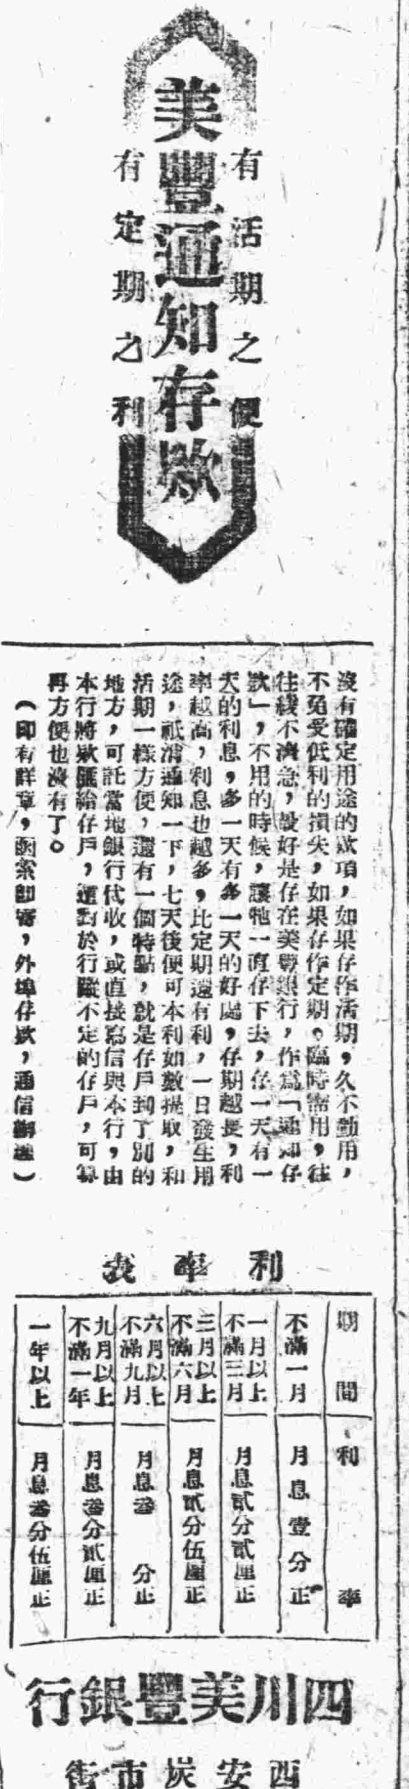 有活期之便
美豐通知存款
有定期之利
沒有確定用途的款項，如果存作活期，久不動用，
不免受低利的損失，如果存作定期。臨時需用，往
往緩不濟急，最好是存在美豐銀行，作爲「通知存
款」，不用的時候，讓牠一直存下去，存一天有一
天的利息，多一天有多一天的好處，存期越長，利
率越高，利息也越多，比定期還有利，一日發生用
途，祇消通知一下，七天後便可本利如數提取，和
活期一樣方便，還有一個特點，就是存戶到了別的
地方，可託當地銀行代收，或直接寫信與本行，由
本行將款匯給存戶，這對於行蹤不定的存戶，可算
再方便也沒有了。
（印有詳章，函索即寄，外埠存款，通信辦理）
利率表
期間 利率
不滿一月 月息壹分正
一月以上不滿三月 月息貳分貳厘正
三月以上不滿六月 月息貳分伍厘正
六月以上不滿九月 月息叁分正
九月以上不滿一年 月息叁分貳厘正
一年以上 月息叁分伍厘正
四川美豐銀行
西安炭市街